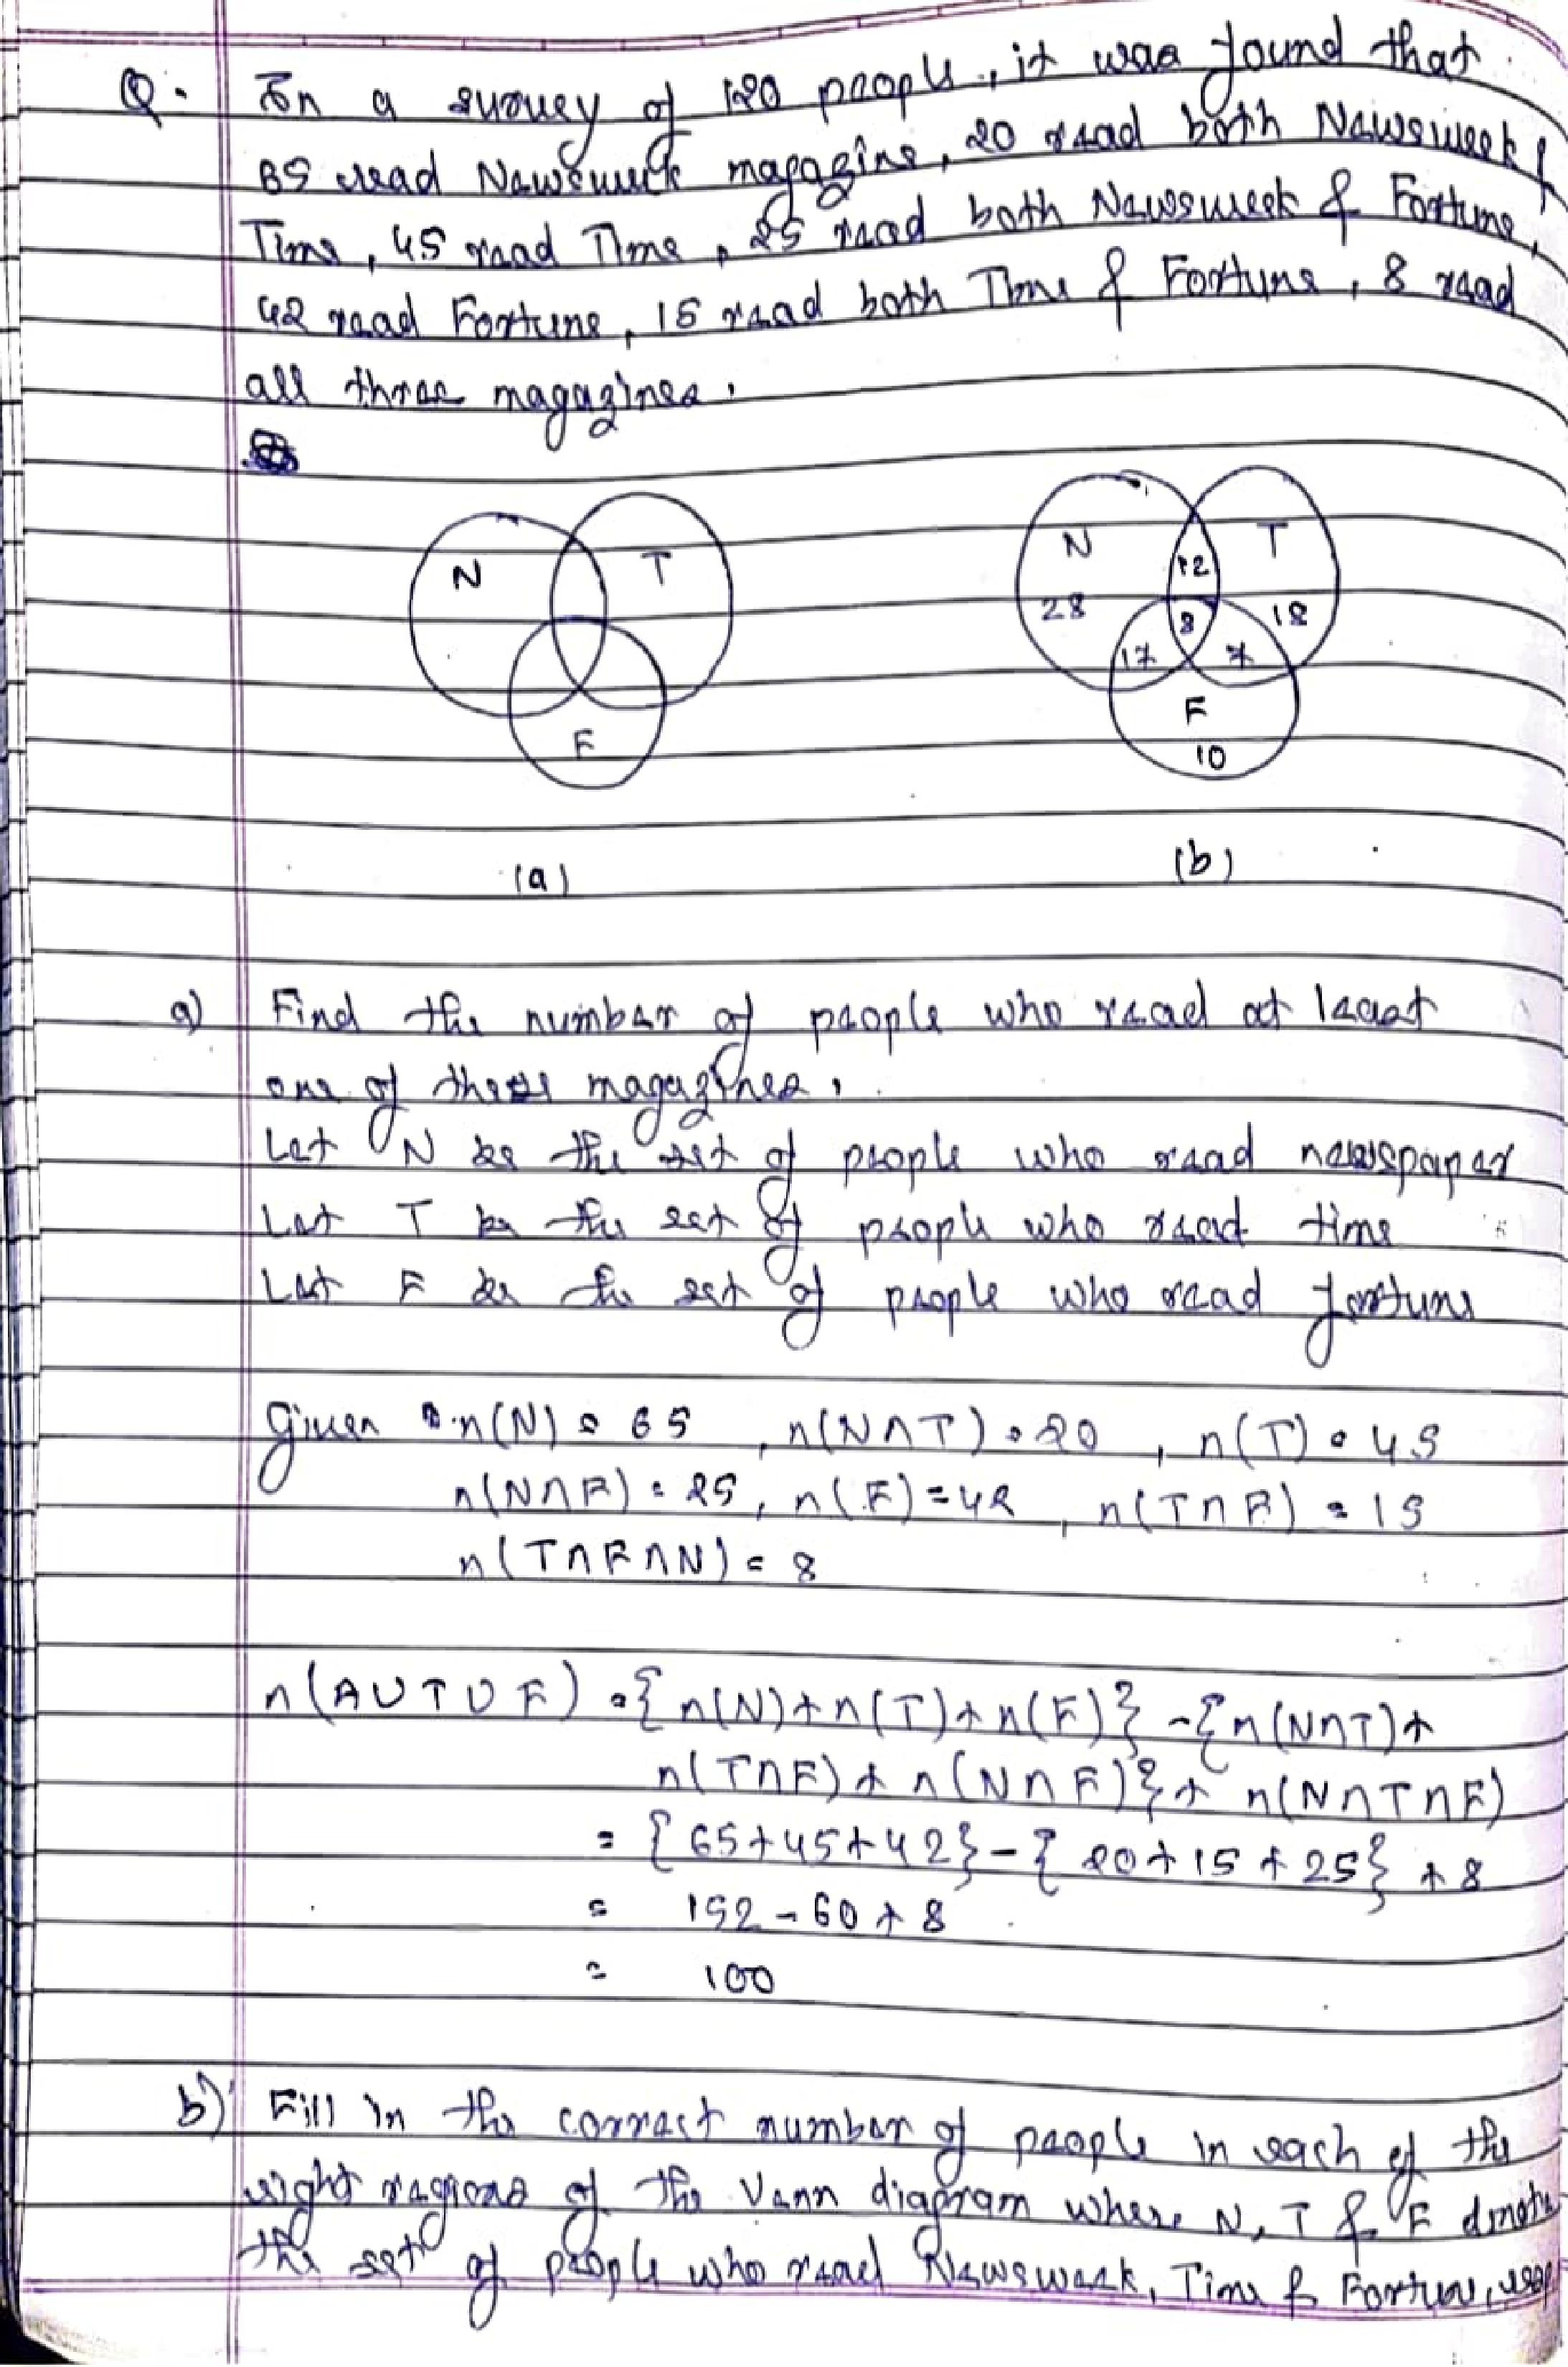 Q. In a survey of 120 people, it was found that
65 read Newsweek magazine, 20 read both Newsweek &
Time, 45 read Time, 25 read both Newsweek & Fortune,
42 read Fortune, 15 read both Time & Fortune, 8 read
all three magazines.
N T
F
(a)
N T
12
28 8 18
17 7
F
10
(b)
a) Find the number of people who read at least
one of these magazines.
Let N be the set of people who read newspaper
Let T be the set of people who read time
Let F be the set of people who read fortune
Given : n(N) = 65 , n(N∩T) = 20 , n(T) = 45
n(N∩F) = 25, n(F) = 42 , n(T∩F) = 15
n(T∩F∩N) = 8
n(A∪T∪F) = {n(N)+n(T)+n(F)} - {n(N∩T)+
n(T∩F) + n(N∩F)} + n(N∩T∩F)
= {65+45+42} - {20+15+25} + 8
= 152 - 60 + 8
= 100
b) Fill in the correct number of people in each of the
eight regions of the Venn diagram where N, T & F dnote
the set of people who read Newsweek, Time & Fortune,